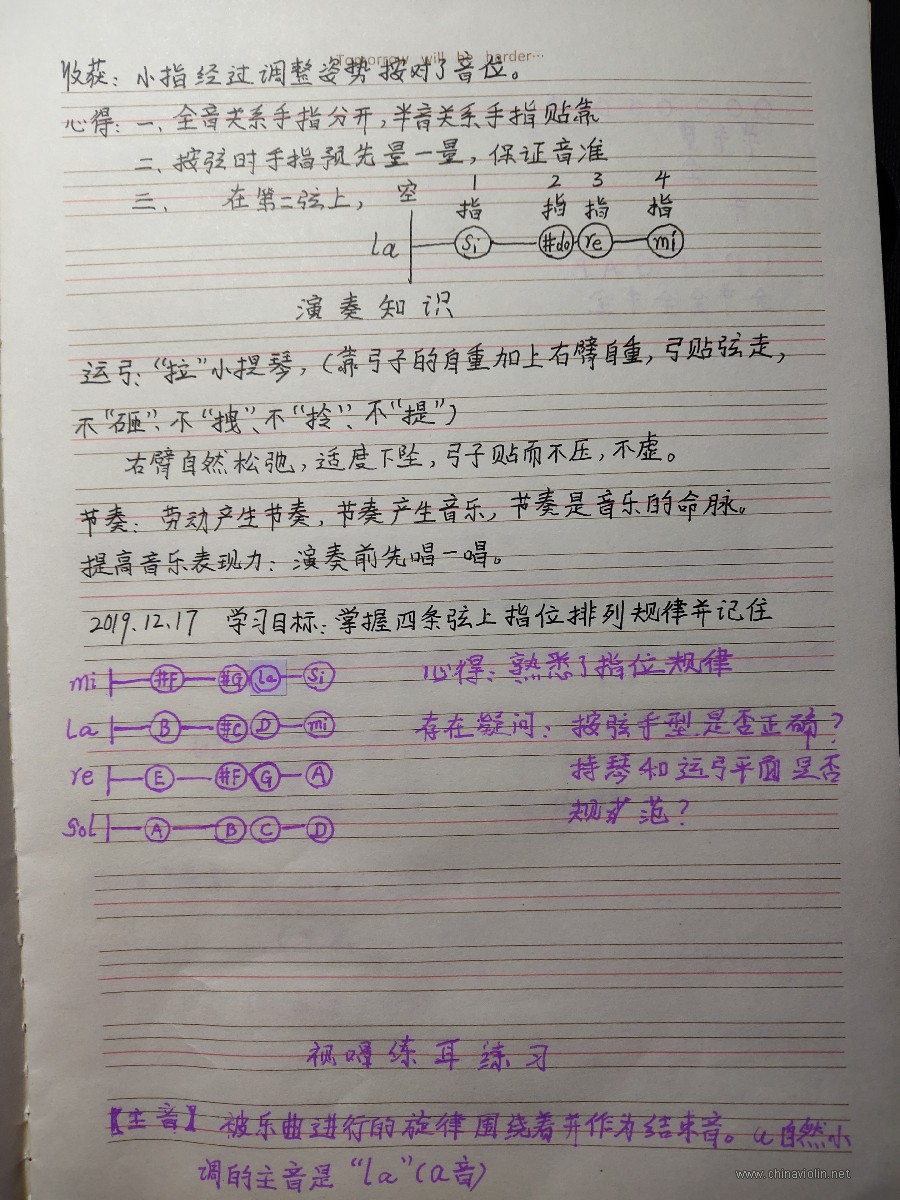 Tomorrow will be harder…
收获：小指经过调整姿势按对了音位。
心得：一、全音关系手指分开，半音关系手指贴靠
二、按弦时手指预先量一量，保证音准
三、在第二弦上， 空 1指 2指 3指 4指
la si #do re mi
演奏知识
运弓：“拉”小提琴，（靠弓子的自重加上右臂自重，弓贴弦走，
不“砸”、不“拽”、不“拎”、不“提”）
右臂自然松弛，适度下坠，弓子贴而不压，不虚。
节奏：劳动产生节奏，节奏产生音乐，节奏是音乐的命脉。
提高音乐表现力：演奏前先唱一唱。
2019.12.17 学习目标：掌握四条弦上指位排列规律并记住
mi #F #G la si 心得：熟悉了指位规律
la B #C D mi 存在疑问：按弦手型是否正确？
re E #F G A 持琴和运弓平面是否
sol A B C D 规范？
视唱练耳练习
【主音】被乐曲进行的旋律围绕着并作为结束音。a自然小
调的主音是“la”（a音）
www.chinaviolin.net